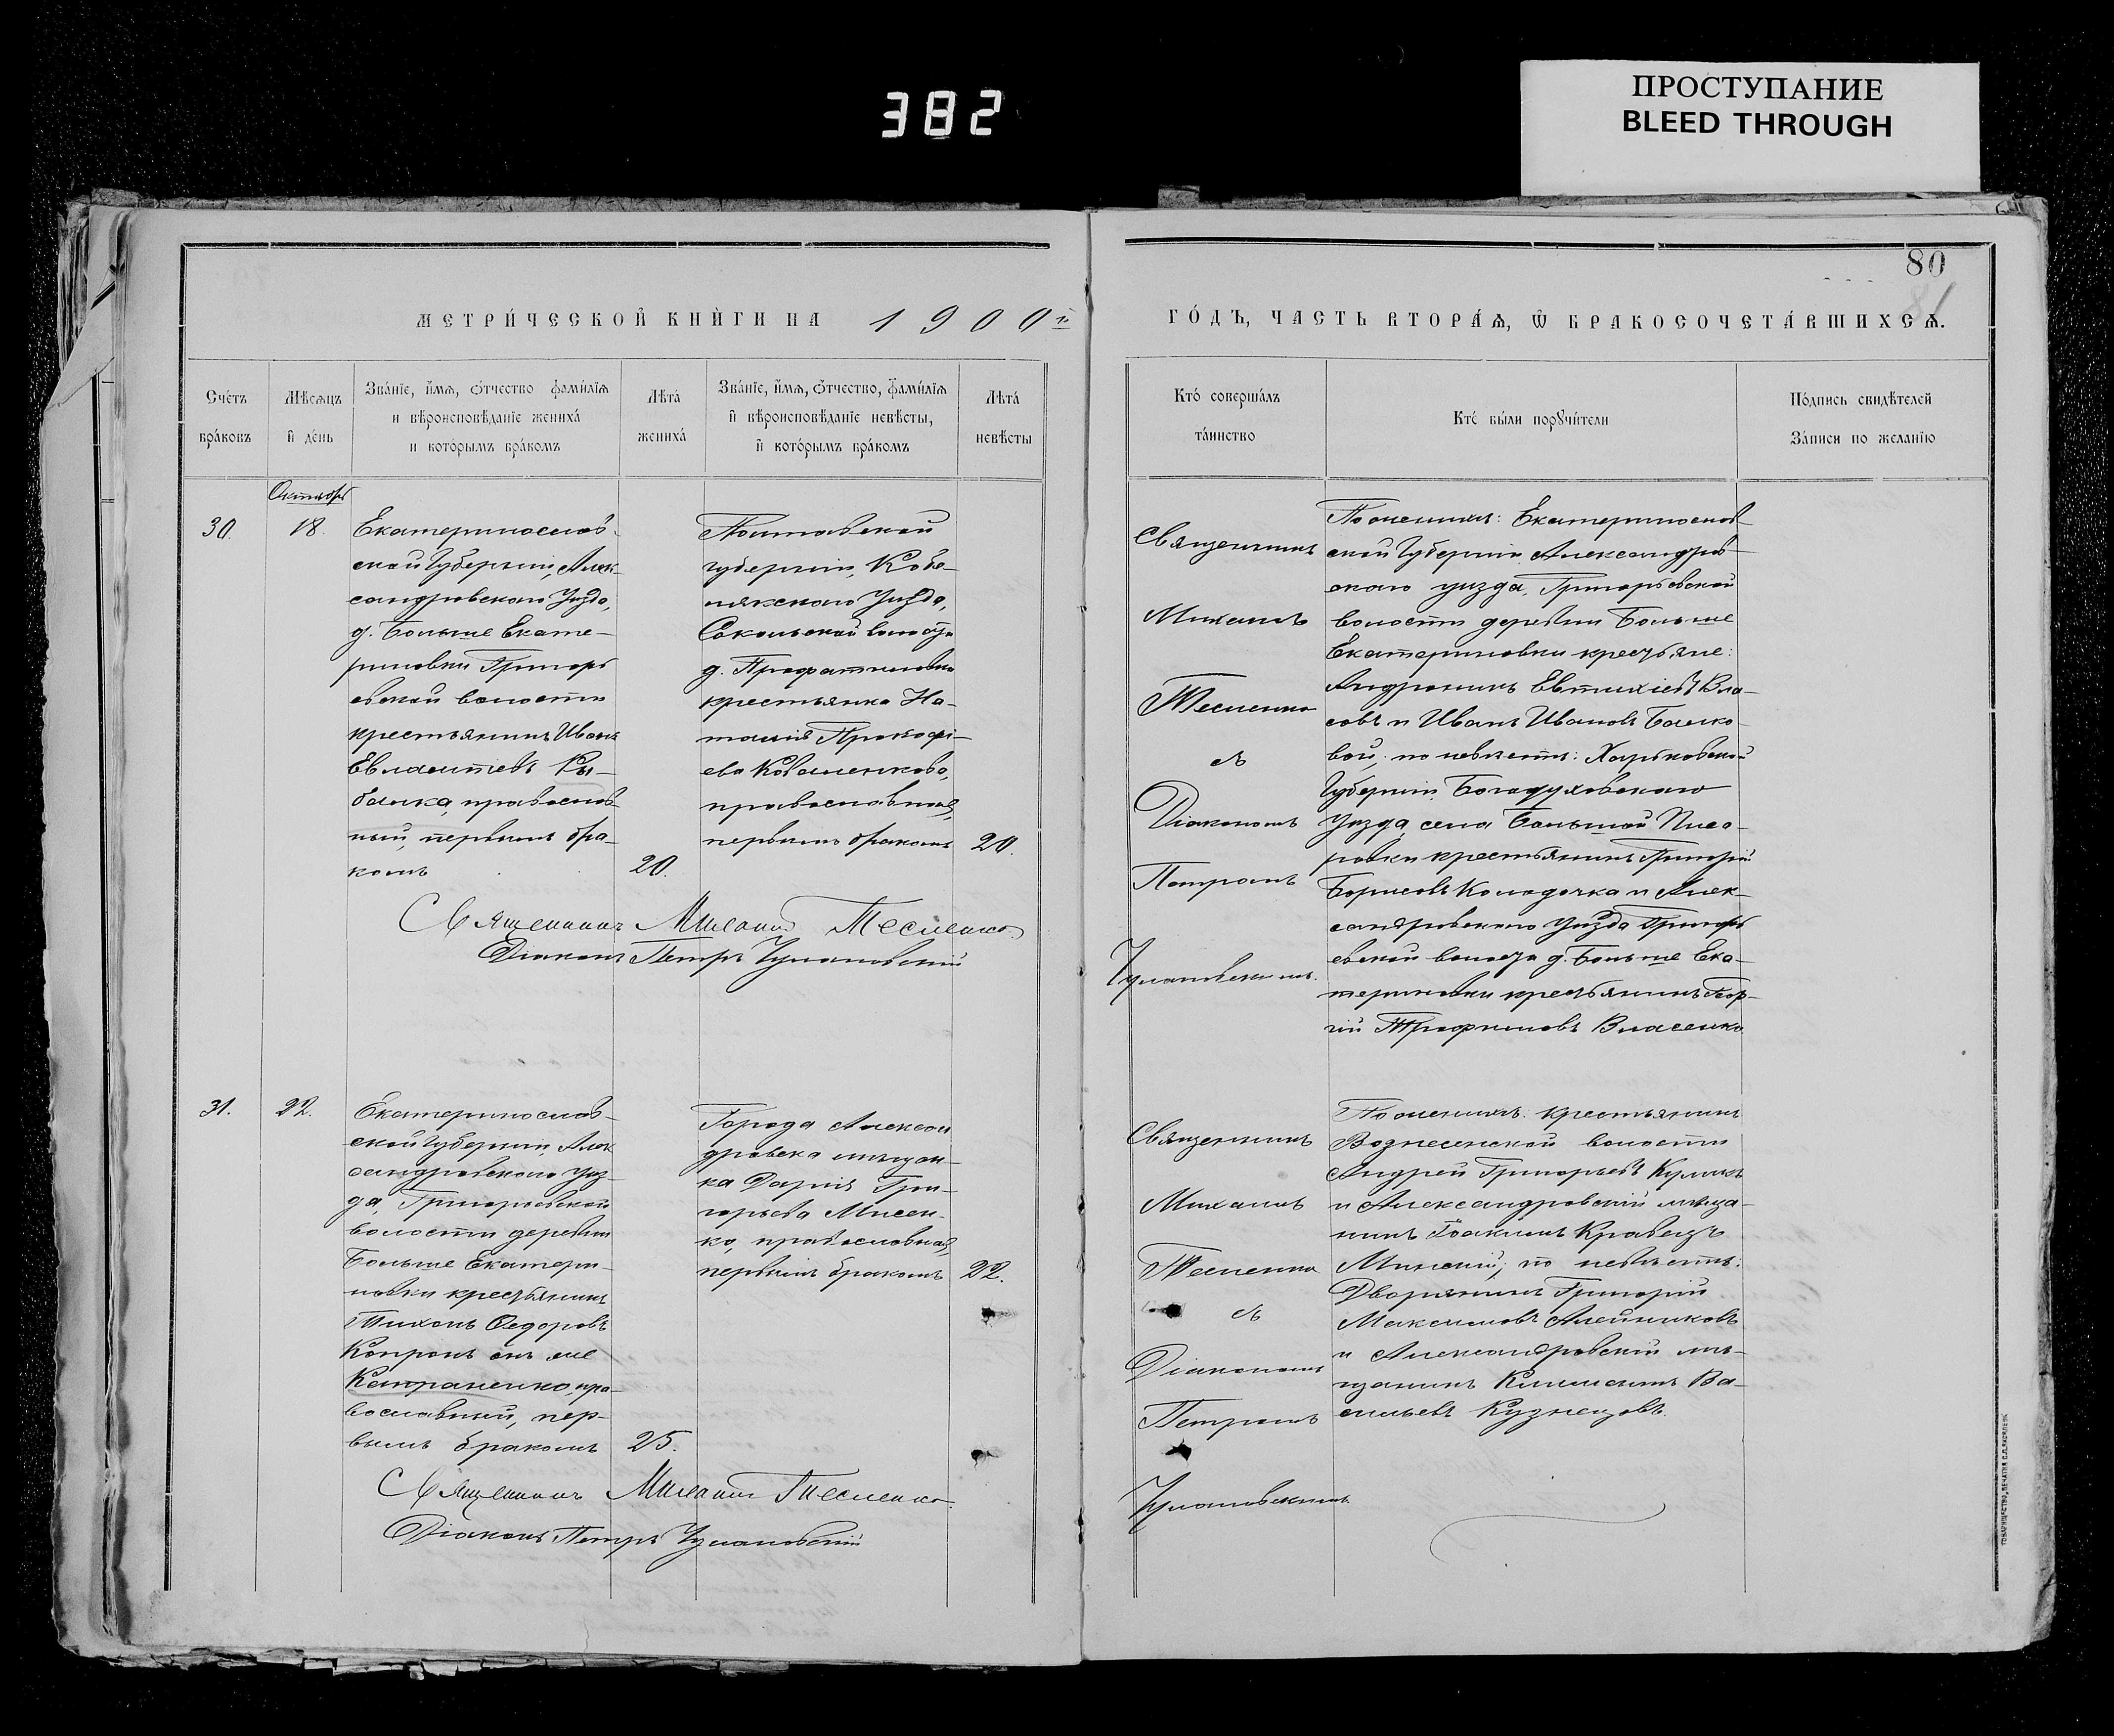 382
ПРОСТУПАНИЕ
BLEED THROUGH
80
81
МЕТРИ́ЧЕСКОЙ КНИ́ГИ НА 1900й
ГО́ДЪ, ЧАСТЬ ВТОРА́Ѧ, Ѿ БРАКОСОЧЕТА́ВШИХСѦ.
Сче́тъ
бра́ковъ
Мѣ́сѧцъ
и҆ де́нь
Зва́нїе, и҆́мѧ, ѻ҆́тчество фами́лїѧ
и вѣроисповѣ́данїе жениха́
и кото́рымъ бра́комъ
Лѣта́
жениха́
Зва́нїе, и҆́мѧ, ѻ҆́тчество, фами́лїѧ
и҆ вѣроисповѣ́данїе невѣ́сты,
и҆ кото́рымъ бра́комъ
Лѣта́
невѣ́сты
Кто́ соверша́лъ
та́инство
Кто́ бы́ли порꙋчи́тели
По́дпись свидѣ́телей
За́писи по жела́нїю
Октябрь
30.
18.
Екатеринослав-
ской Губерніи, Алек-
сандровскаго Уѣзда,
д. Больше Екате-
риновки Григорь
евской волости
крестьянинъ Иванъ
Евлампіевъ Кы-
балка, православ-
ный, первымъ бра-
комъ
20.
Полтавской
губерніи, Кобе-
лякскаго Уѣзда,
Сокольской волости
д.
крестьянка На-
талія Прокофі-
ева Коваленкова,
православная,
первымъ бракомъ
20.
Священникъ Михаилъ Тесленко
Діаконъ Петръ Чулановскій
Священникъ
Михаилъ
Тесленко
съ
Діакономъ
Петромъ
Чулановскимъ.
По женихѣ: Екатеринослав-
ской Губерніи Александров-
скаго уѣзда, Григорьевской
волости деревни Больше
Екатериновки крестьяне:
Андроникъ Евтихіевъ Вла-
совъ и Иванъ Ивановъ Балко-
вой; по невѣстѣ: Харьковской
Губерніи Богодуховскаго
Уѣзда, села Большой Писа-
ревки крестьянинъ Григорій
Борисовъ Колодочка и Алек-
сандровскаго Уѣзда Григорь
евской волости д. Больше Ека-
териновки крестьянинъ Геор-
гій Трофимовъ Власенко
31.
22.
Екатеринослав-
ской Губерніи, Алек
сандровскаго Уѣз-
да, Григорьевской
волости деревни
Больше Екатери-
новки крестьянинъ
Тихонъ Федоровъ
Капронъ онъ же
Капраненко, пра-
вославный, пер-
вымъ бракомъ
25.
Города Алексан
дровска мѣщан-
ка Дарія Гри-
горьева Мисен-
ко, православная,
первымъ бракомъ
22.
Священникъ Михаилъ Тесленко
Діаконъ Петръ Чулановскій
Священникъ
Михаилъ
Тесленко
съ
Діакономъ
Петромъ
Чулановскимъ
По женихѣ: крестьянинъ
Вознесенской волости
Андрей Григорьевъ Кулакъ
и Александровскій мѣща-
нинъ Іоакимъ Кравецъ
Минскій; по невѣстѣ:
Дворянинъ Григорій
Максимовъ Алейниковъ
и Александровскій мѣ-
щанинъ Климентъ Ва-
сильевъ Кузнецовъ.